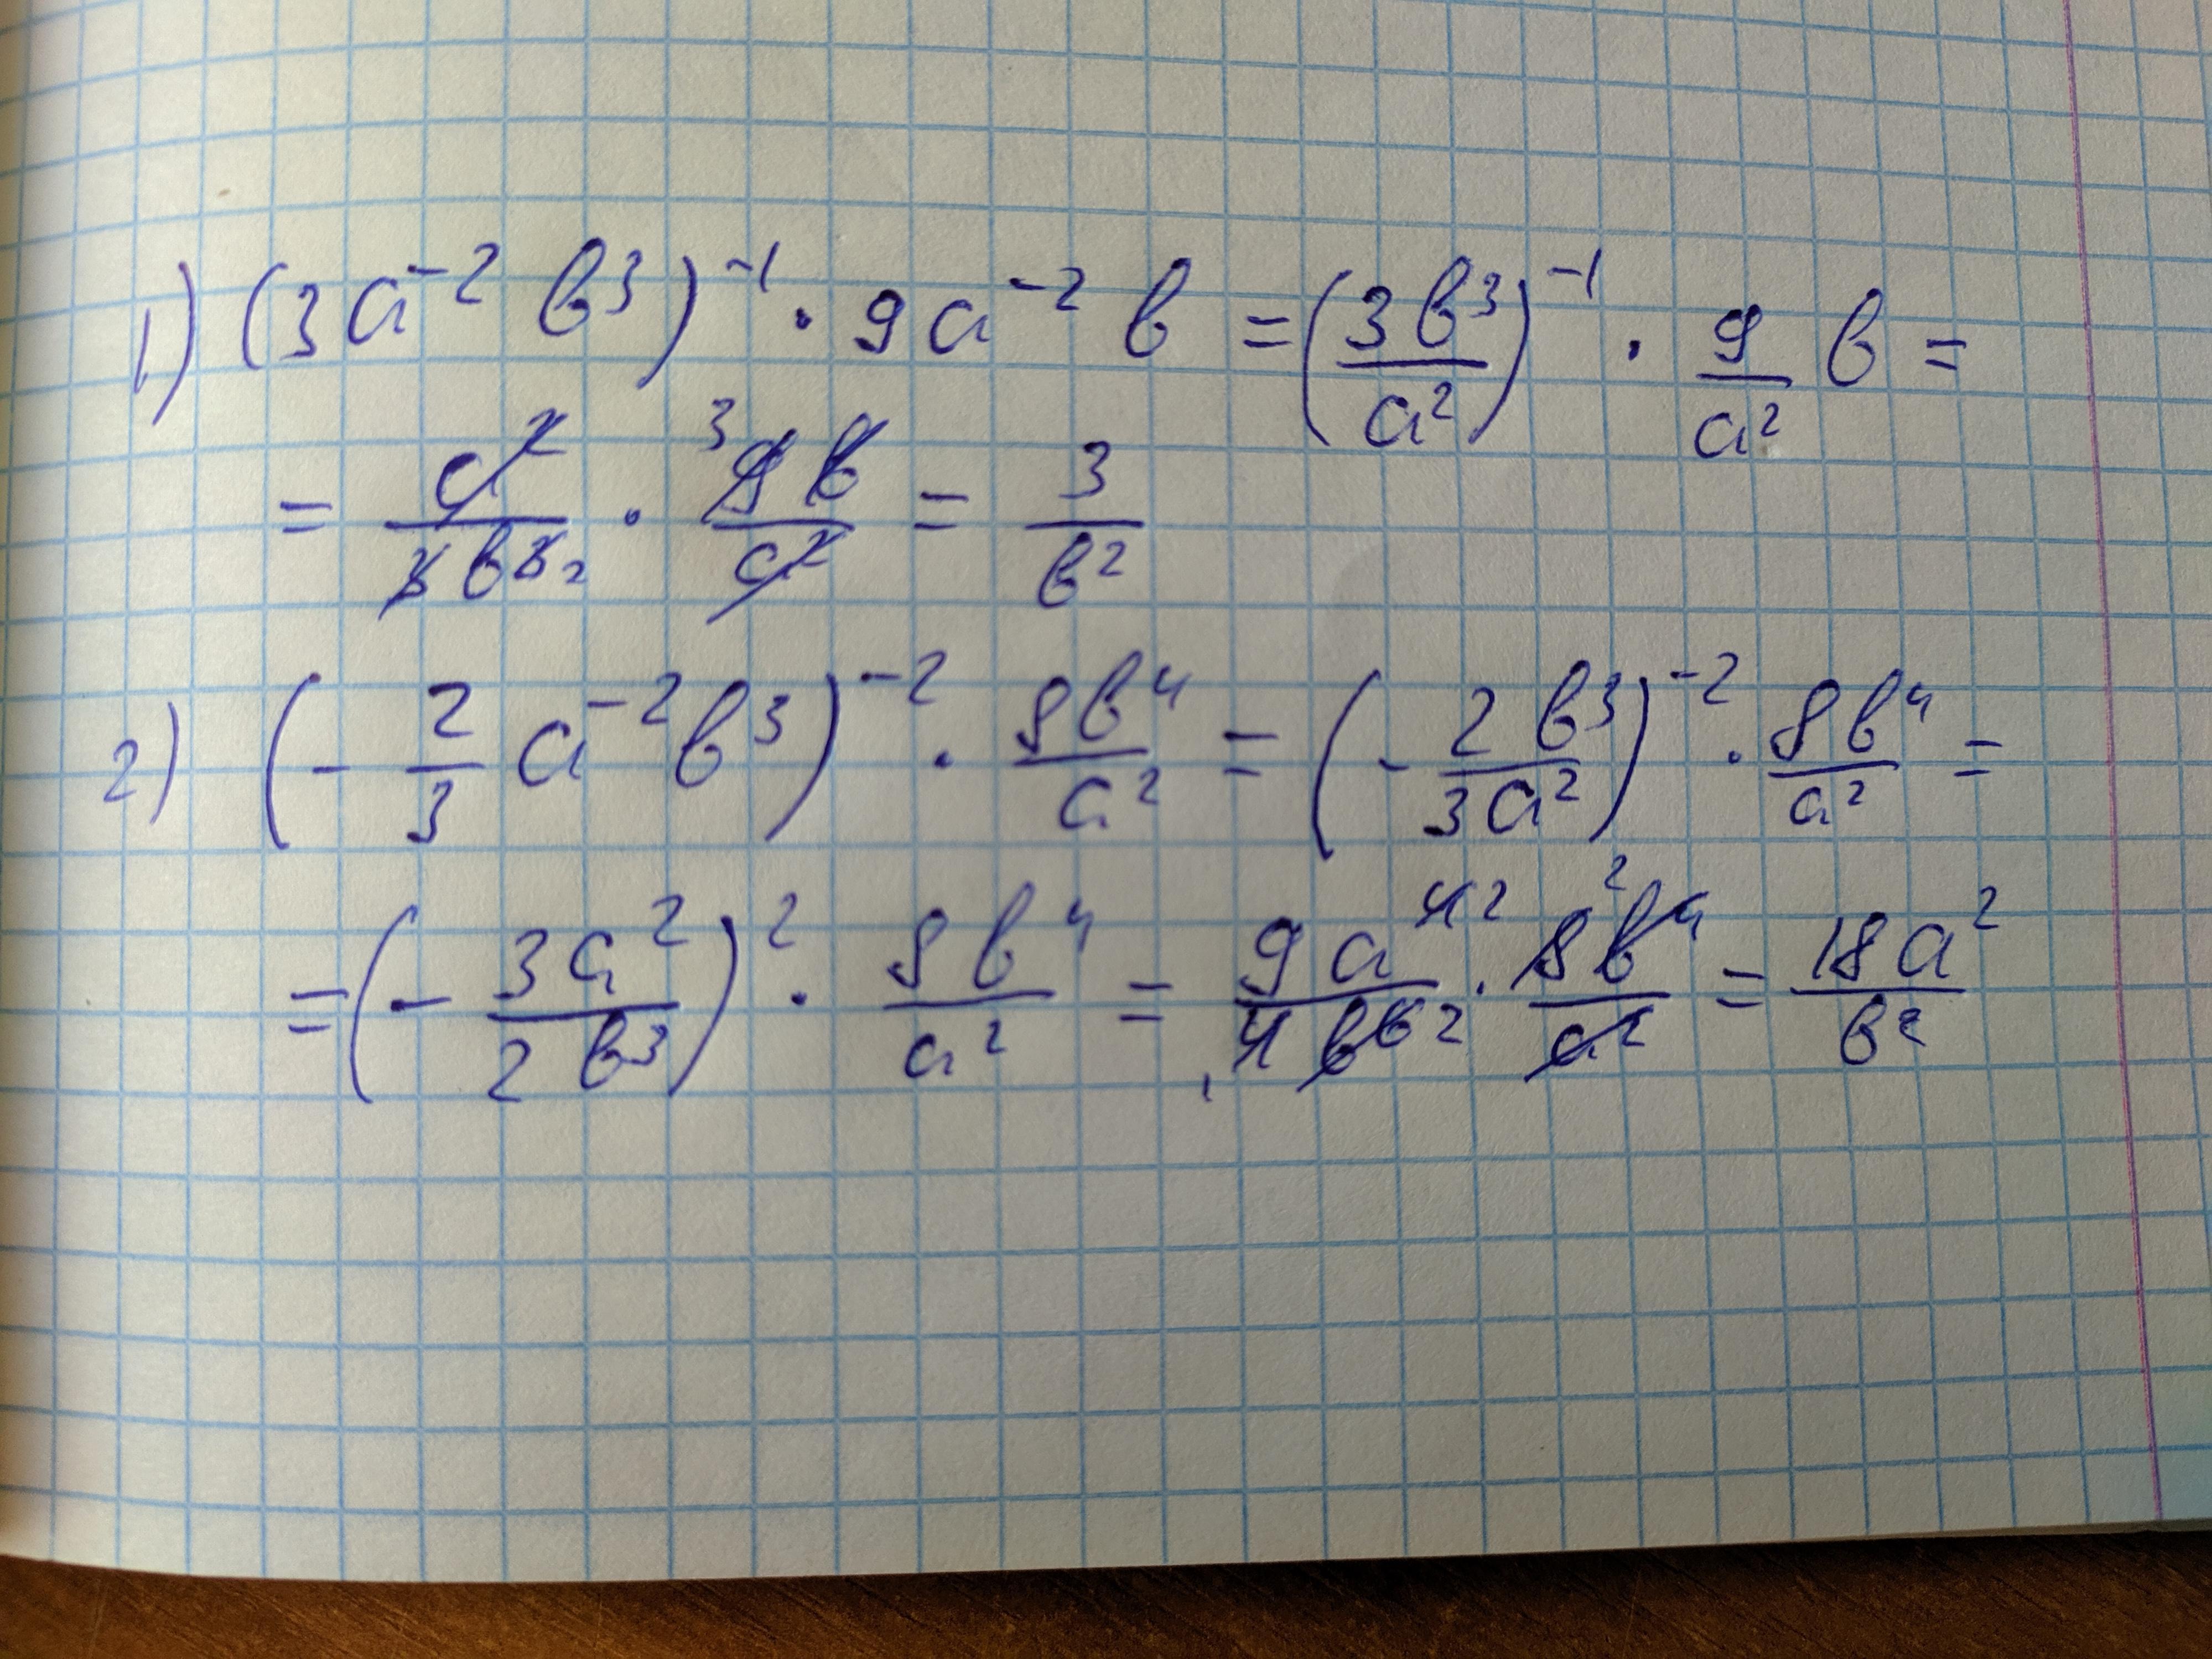 1) (3a⁻² b³)⁻¹ · 9a⁻² b = (3b³/a²)⁻¹ · 9/a² b =
= a²/3b³ 2 · 3 9b/a² = 3/b²
2) (- 2/3 a⁻²b³)⁻² · 8b⁴/a² = (- 2b³/3a²)⁻² · 8b⁴/a² =
= (- 3a²/2b³)² · 8b⁴/a² = 9a⁴ 2/1 4b⁶ 2 · 2 8b⁴/a² = 18a²/b²